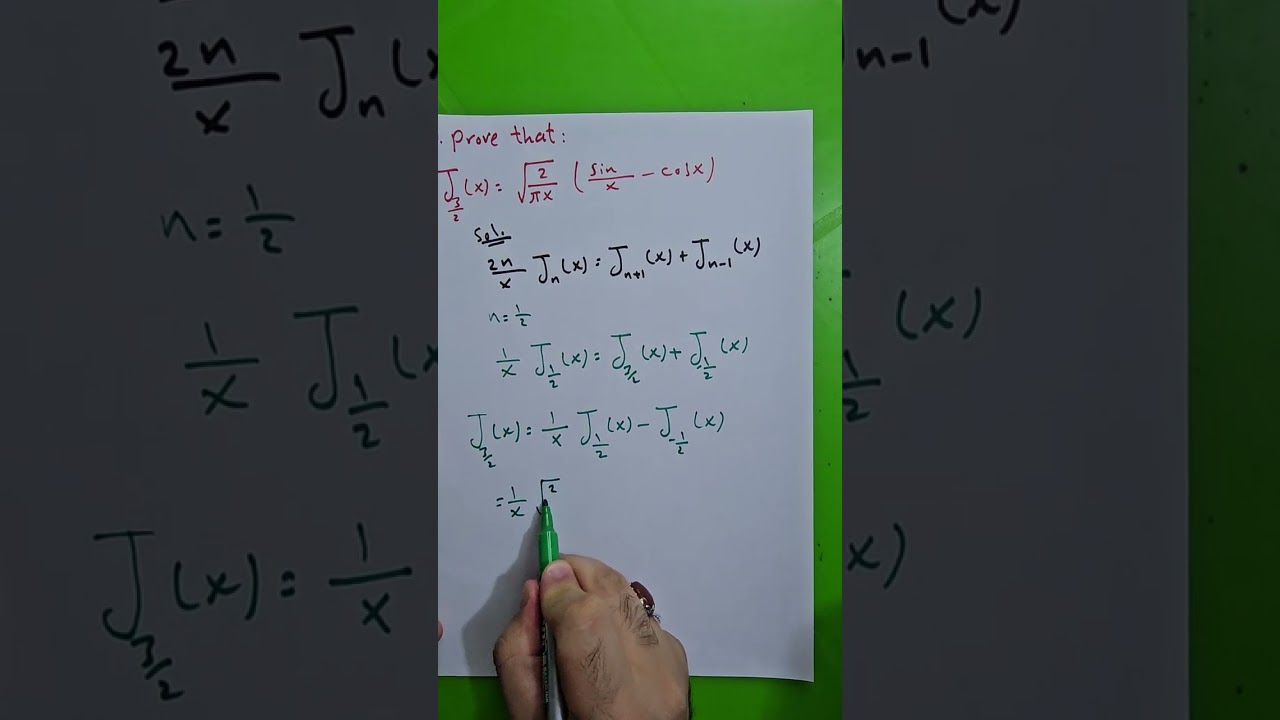 . Prove that:
J_{3/2}(x) = √(2/πx) (sin/x - cosx)
Sol.
2n/x J_n(x) = J_{n+1}(x) + J_{n-1}(x)
n = 1/2
1/x J_{1/2}(x) = J_{3/2}(x) + J_{-1/2}(x)
J_{3/2}(x) = 1/x J_{1/2}(x) - J_{-1/2}(x)
= 1/x √2